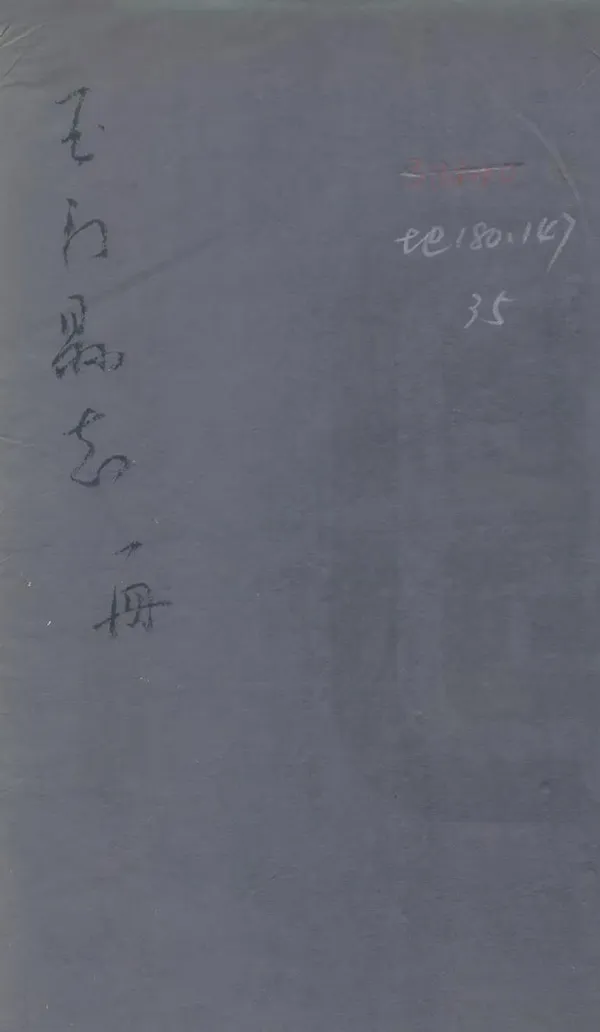 玉门縣志
一冊
地180.147
35